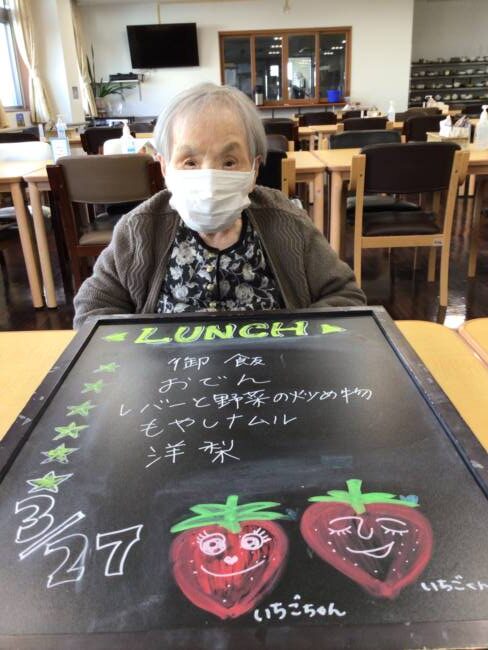 LUNCH
御飯
おでん
レバーと野菜の炒め物
もやしナムル
洋梨
3/27
いちごちゃん
いちごくん